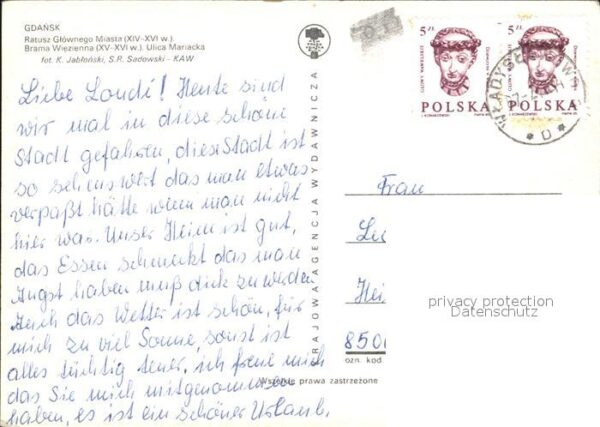 GDAŃSK
Ratusz Głównego Miasta (XIV-XVI w.)
Brama Więzienna (XV-XVI w.) Ulica Mariacka
fot. K. Jabłoński, S.R. Sadowski - KAW
Liebe Loudi! Heute sind
wir mal in diese schöne
Stadt gefahren, diese Stadt ist
so sehenswert das man etwas
verpaßt hätte wenn man nicht
hier war. Unser Heim ist gut,
das Essen schmeckt das man
Angst haben muß dick zu werden
Auch das Wetter ist schön, für
mich zu viel Sonne, sonst ist
alles tüchtig teuer, ich freue mich
das Sie mich mitgenommen
haben, es ist ein schöner Urlaub.
KRAJOWA AGENCJA WYDAWNICZA
Wszelkie prawa zastrzeżone
5zł
POLSKA
5zł
POLSKA
WŁADYSŁAWOWO
Frau
Lu
Hei
privacy protection
Datenschutz
850
ozn. kod